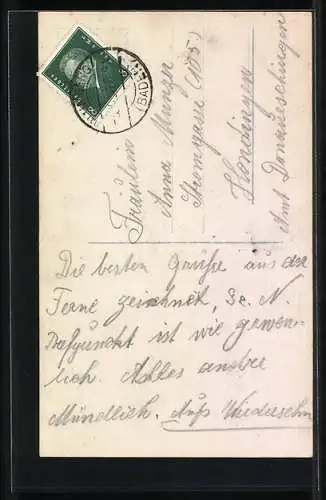 (BADEN)
Fräulein
Anna Münzer
Stromgasse (105)
Hondingen
Amt Donaueschingen
Die besten Grüße aus der
Ferne zeichnet,
ist wie gewon-
lich. Alles andre
Mündlich. Aufs Wiedersehn